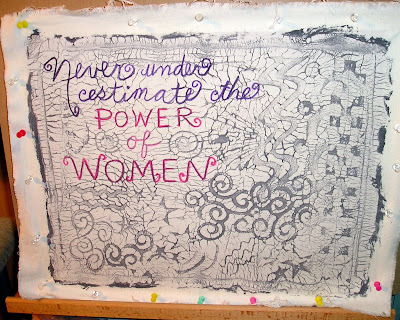 Never under
estimate the
POWER
of
WOMEN